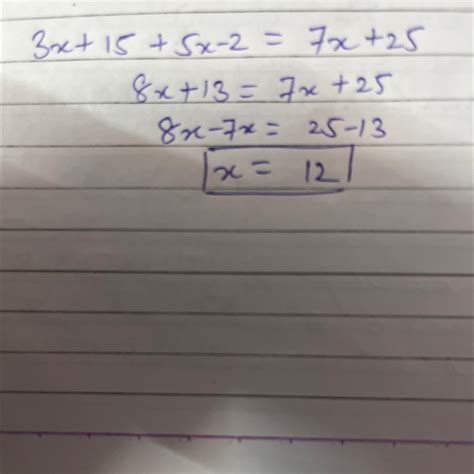 3x+15+5x-2 = 7x+25
8x+13 = 7x+25
8x-7x = 25-13
x = 12